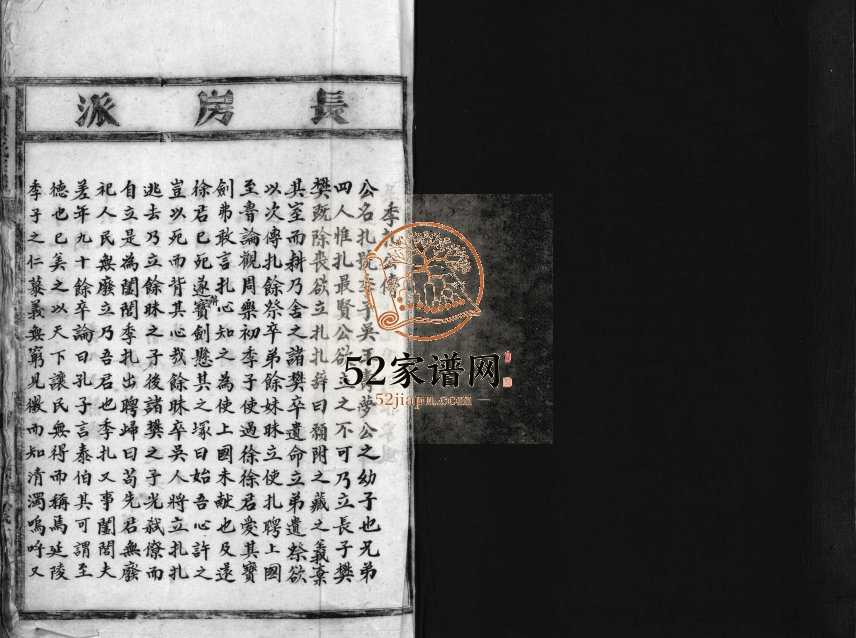 長房派
季札公傳
公名札號季子吳壽夢公之幼子也兄弟
四人惟札最賢公欲立之不可乃立長子樊
樊既除喪欲立札札辭曰願附之藏之義棄
其室而耕乃舍之諸樊卒遺命立弟遺祭欲
以次傳札餘祭卒弟餘妹昧立使札聘上國
至魯論觀周樂初季子使過徐徐君愛其寶
劍弗敢言札心知之為使上國未献也及還
徐君已死遂解寶劍懸其之塚曰始吾心許之
豈以死而背其心哉餘昧卒吳人將立札札
逃去乃立餘昧之子後諸樊之子光弒僚而
自立是為闔閭季札出聘歸曰苟先君無廢
祀人民無廢立乃吾君也季札又事闔閭夫
差年九十餘卒論曰孔子言泰伯其可謂至
德也已矣之以天下讓民無得而稱焉延陵
季子之仁慕義無窮見微而知清濁嗚呼又
52家谱网
52jiapu.com